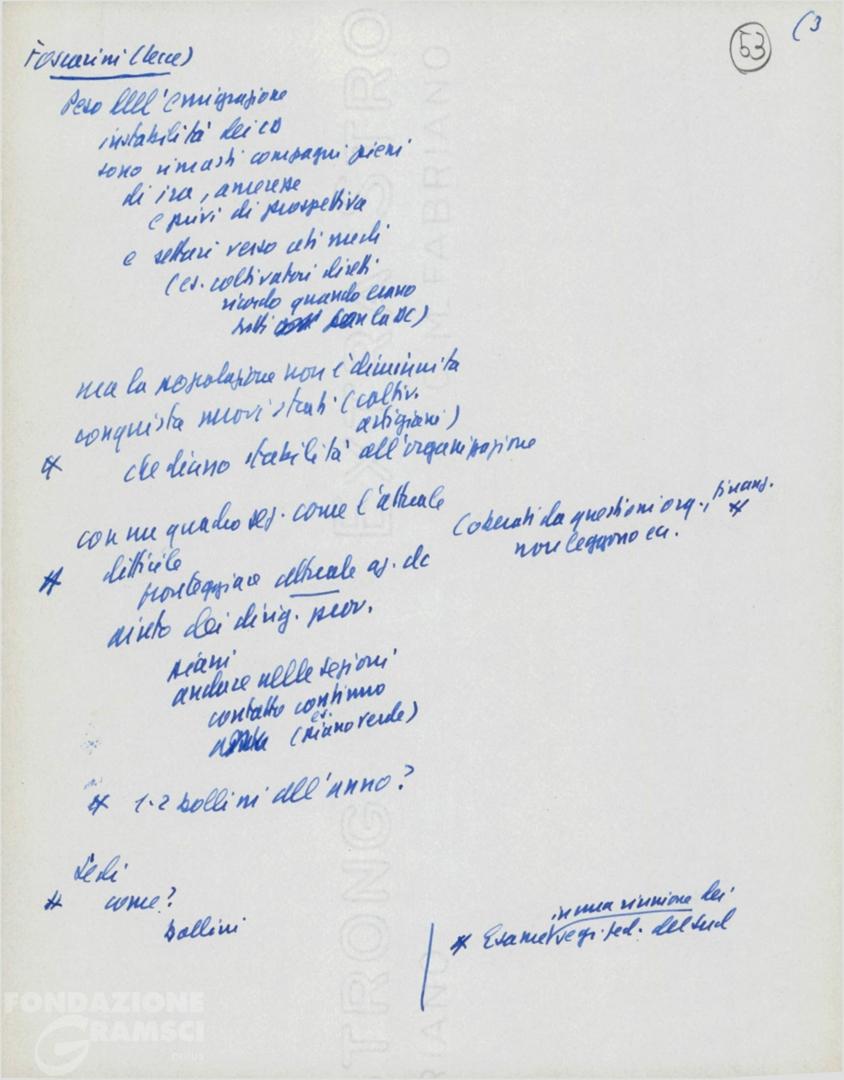 (3
53
Foscarini (Lecce)
Peso dell'emigrazione
instabilità dei CD
sono rimasti compagni pieni
di ira, amarezze
e privi di prospettiva
e settari verso ceti medi
(es. coltivatori diretti
ricordo quando erano
tutti con la DC)
ma la popolazione non è diminuita
conquista nuovi strati (coltiv.
artigiani)
* che diano stabilità all'organizzazione
con un quadro seg. come l'attuale
difficile
(oberati da questioni org., finanz.
non leggono ecc.
* fronteggiare attuale az. dc
aiuto dei dirig. prov.
piani
andare nelle sezioni
contatto continuo
es.
(piano verde)
* 1-2 bollini all'anno?
Sedi
* come?
bollini
in una riunione dei
* Esame segr. fed. del sud
EXTRA STRONG
EXTRA STRO
C.M. FABRIANO
RIANO
FONDAZIONE
GRAMSCI
onlus